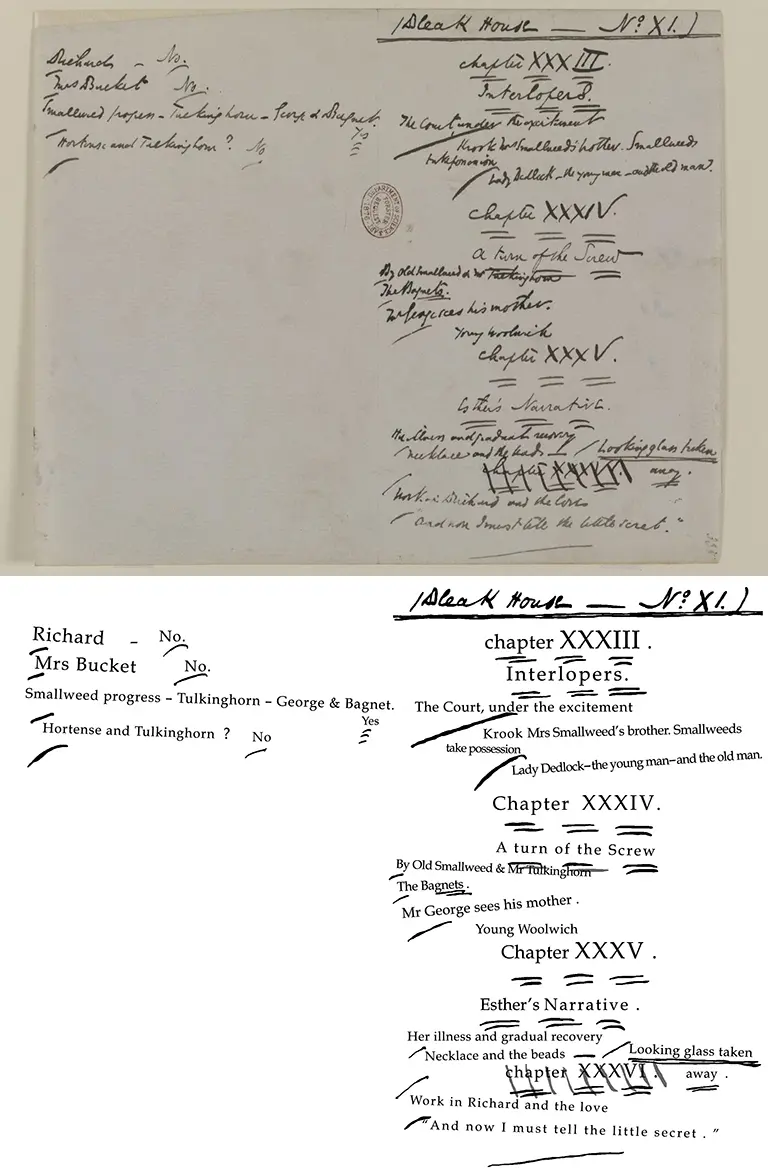 (Bleak House — No. XI.)
Richard – No.
Mrs Bucket No.
Smallweed progress – Tulkinghorn – George & Bagnet.
Yes
Hortense and Tulkinghorn ? No
chapter XXXIII.
Interlopers.
The Court, under the excitement
Krook Mrs Smallweed's brother. Smallweeds
take possession
Lady Dedlock – the young man – and the old man.
Chapter XXXIV.
A turn of the Screw
By Old Smallweed & Mr Tulkinghorn
The Bagnets.
Mr George sees his mother.
Young Woolwich
Chapter XXXV.
Esther's Narrative.
Her illness and gradual recovery
Necklace and the beads — Looking glass taken
chapter XXXVI away.
Work in Richard and the love
"And now I must tell the little secret."
(Bleak House — No. XI.)
Richard – No.
Mrs Bucket No.
Smallweed progress – Tulkinghorn – George & Bagnet.
Yes
Hortense and Tulkinghorn ? No
chapter XXXIII .
Interlopers.
The Court, under the excitement
Krook Mrs Smallweed's brother. Smallweeds
take possession
Lady Dedlock–the young man–and the old man.
Chapter XXXIV.
A turn of the Screw
By Old Smallweed & Mr Tulkinghorn
The Bagnets .
Mr George sees his mother .
Young Woolwich
Chapter XXXV .
Esther's Narrative .
Her illness and gradual recovery
Necklace and the beads — Looking glass taken
chapter XXXVI away .
Work in Richard and the love
"And now I must tell the little secret . "